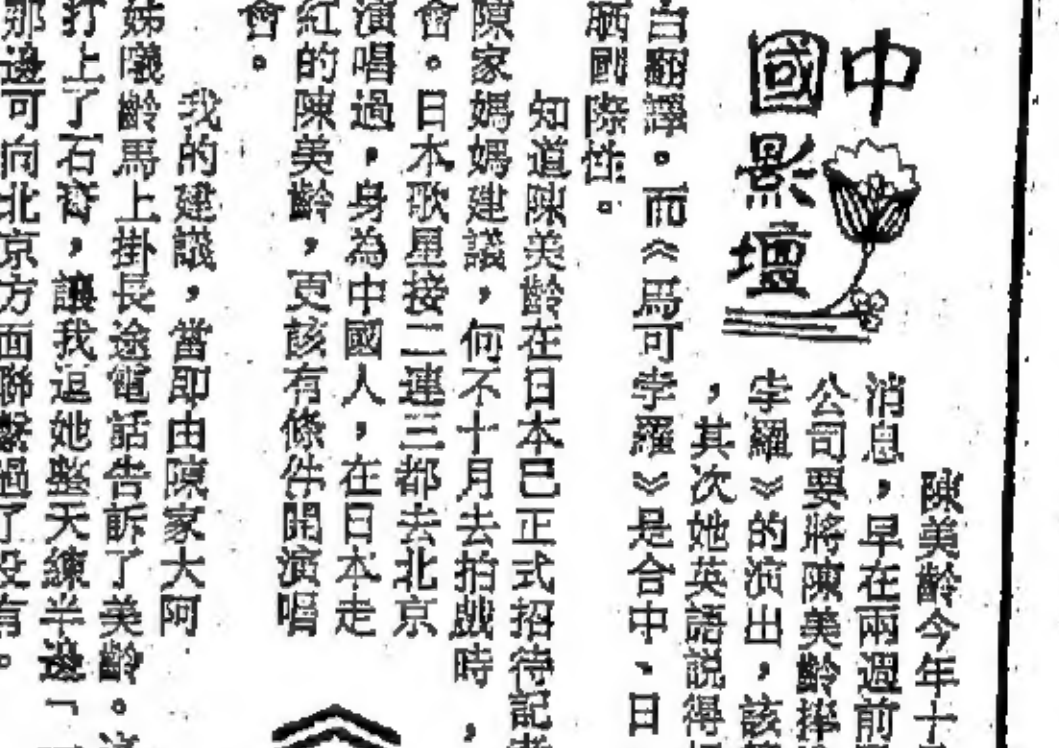 中國影壇
陳美齡今年十
消息，早在兩週前
公司要將陳美齡
孛羅》的演出，該
，其次她英語說得
白翻譯。而《馬可孛羅》是合中、日
國際性。
知道陳美齡在日本已正式招待記者
陳家媽媽建議，何不十月去拍戲時，
會。日本歌星接二連三都去北京
演唱過，身為中國人，在日本走
紅的陳美齡，更該有條件開演唱
會。
我的建議，當即由陳家大阿
姊曦齡馬上掛長途電話告訴了美齡。
打上了石膏，讓我逗她整天練半邊「
那邊可向北京方面聯繫過了沒有。